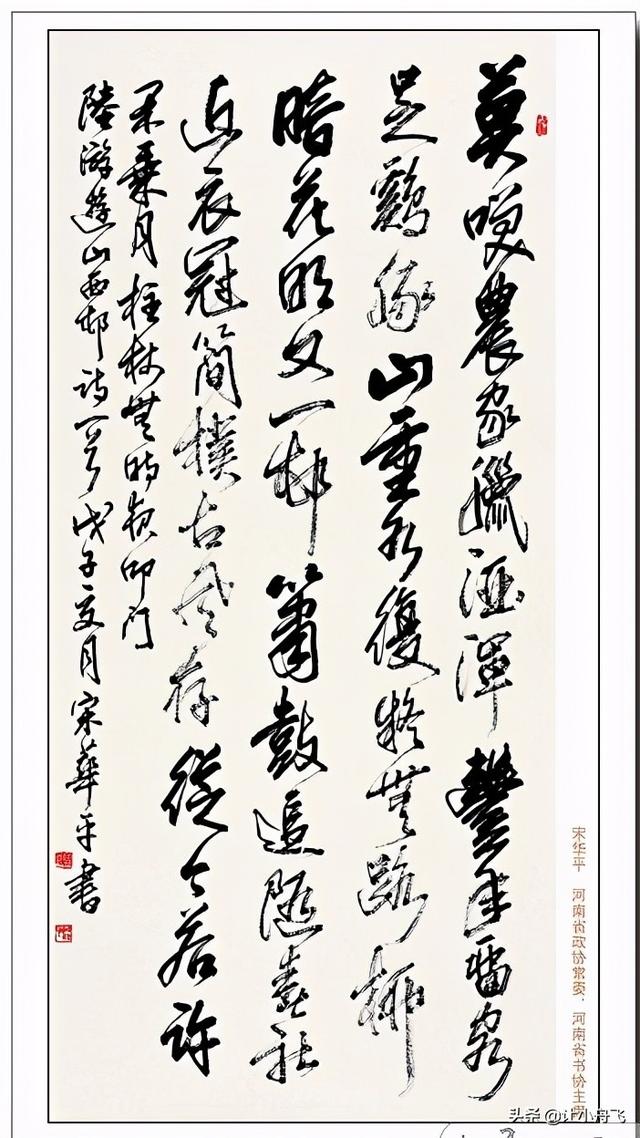 莫咲農家臘酒渾豐年留客
足鷄豚山重水復疑無路柳
暗花明又一邨簫鼓追隨春社
近衣冠簡樸古風存從今若許
閑乘月拄杖無時夜叩门
陸游遊山西邨诗一首戊子夏月宋華平書
宋华平 河南省政协常委、河南省书协主席
头条 @计小舟飞